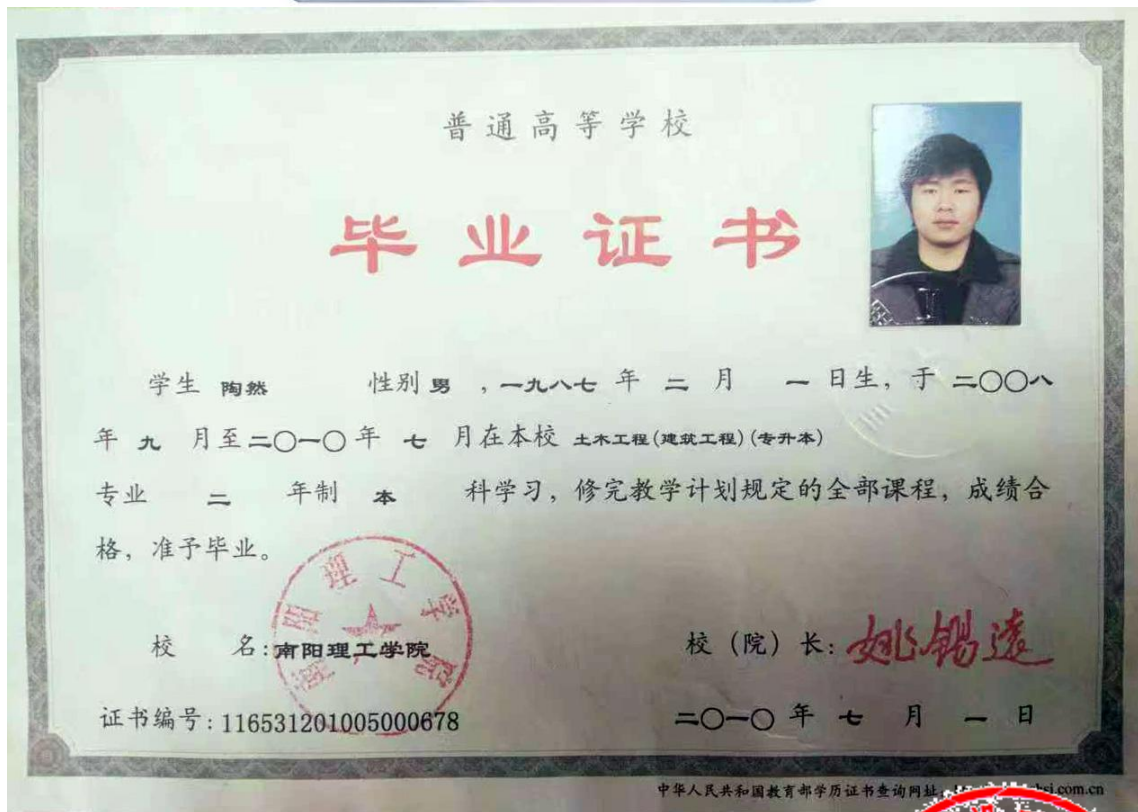 普通高等学校
毕业证书
学生 陶然 性别 男 ，一九八七 年 二 月 一 日生，于 二〇〇八
年 九 月至 二〇一〇 年 七 月在本校 土木工程(建筑工程)(专升本)
专业 二 年制 本 科学习，修完教学计划规定的全部课程，成绩合
格，准予毕业。
南阳理工学院
校 名：南阳理工学院
校（院）长：姚锡远
证书编号：116531201005000678
二〇一〇 年 七 月 一 日
中华人民共和国教育部学历证书查询网址：
.com.cn